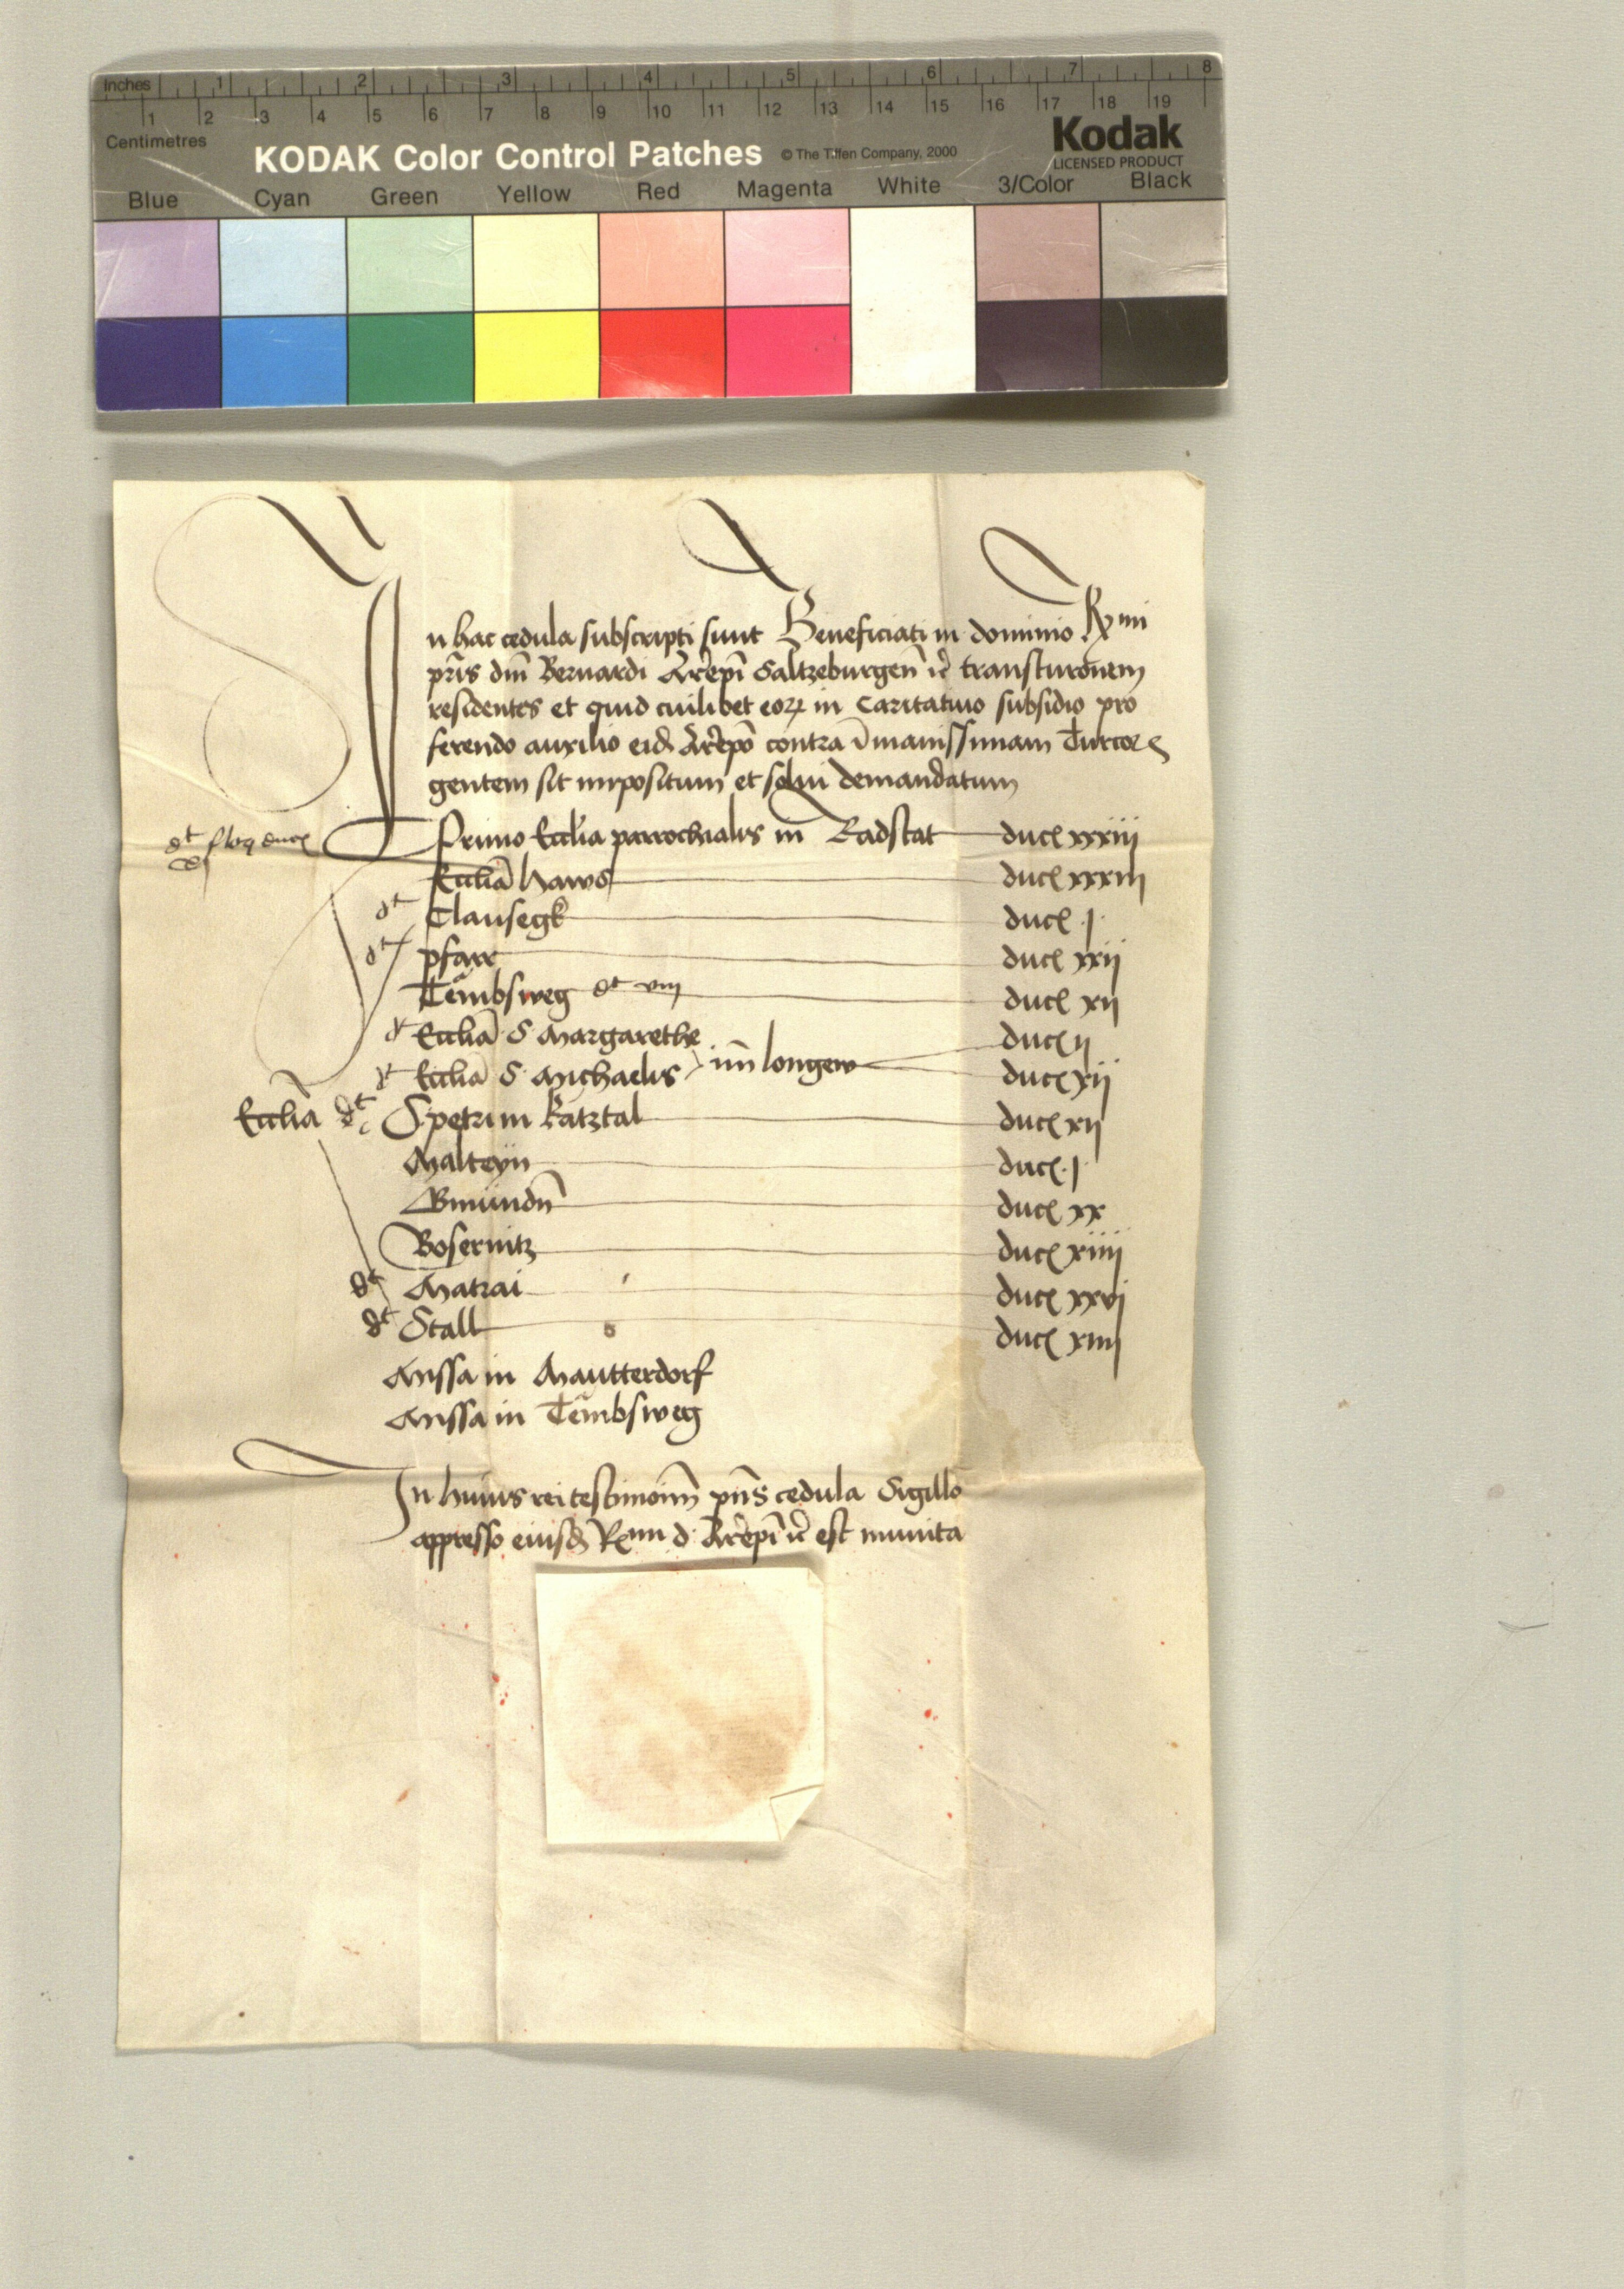 Inches 1 2 3 4 5 6 7 8
Centimetres 1 2 3 4 5 6 7 8 9 10 11 12 13 14 15 16 17 18 19
KODAK Color Control Patches © The Tiffen Company, 2000
Kodak
LICENSED PRODUCT
Blue Cyan Green Yellow Red Magenta White 3/Color Black
In hac cedula subscripti sunt Beneficiati in dominio Rmi
pris dm̄ Bernardi Ar̄epī Saltzeburgeñ ꝛc̄ transturonem
residentes et quid cuilibet eoꝝ in Caritatiuo subsidio pro
ferendo auxilio eid Ar̄epō contra īmanissimam Turcoꝝ
gentem sit impositum et solui demandatum
Primo Eccl̄ia parrochialis in Radstat ducͣ xxxiij
Eccl̄ia haws ducͣ xxxiij
dt Clausegk ducͣ .j.
dt pfarr ducͣ xxij
Tembsweg dt viij ducͣ xij
dt Eccl̄ia S Margarethe ducͣ ij
dt Eccl̄ia S Michaelis im̄ longew ducͣ xij
Eccl̄ia dt S petri in katztal ducͣ xij
Malteyn ducͣ .j.
Gmündn̄ ducͣ xx
Bosernitz ducͣ xiiij
dt Matrai ducͣ xxvj
dt Stall ducͣ xiiij
Missa in Mautterdorf
Missa in Tembsweg
In huius rei testimoniū pn̄s cedula Sigillo
appresso eiusd Rmi d. Ar̄epī ꝛc̄ est munita